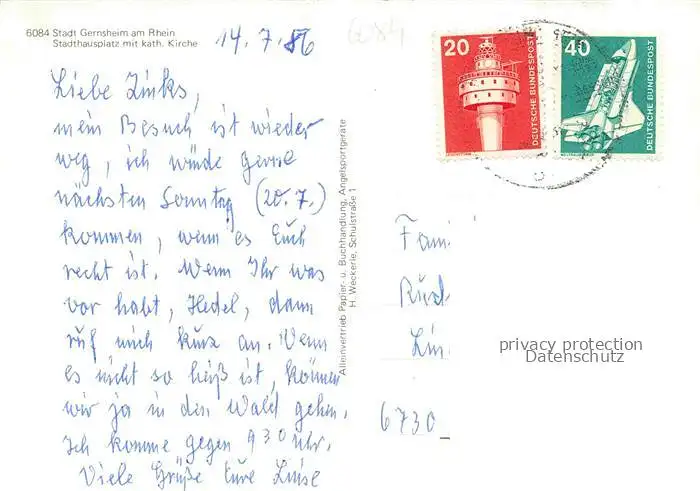 6084 Stadt Gernsheim am Rhein
Stadthausplatz mit kath. Kirche
14.7.86
6084
Liebe Zinks,
mein Besuch ist wieder
weg, ich würde gerne
nächsten Sonntag (20.7.)
kommen, wenn es Euch
recht ist. Wenn Ihr was
vor habt, Hedel, dann
ruf mich kurz an. Wenn
es nicht so heiß ist, können
wir ja in den Wald gehen.
Ich komme gegen 9 30 Uhr.
Viele Grüße Eure Luise
Alleinvertrieb Papier- u. Buchhandlung, Angelsportgeräte
H. Weckerle, Schulstraße 1
20
DEUTSCHE BUNDESPOST
40
DEUTSCHE BUNDESPOST
Fam
6730
privacy protection
Datenschutz